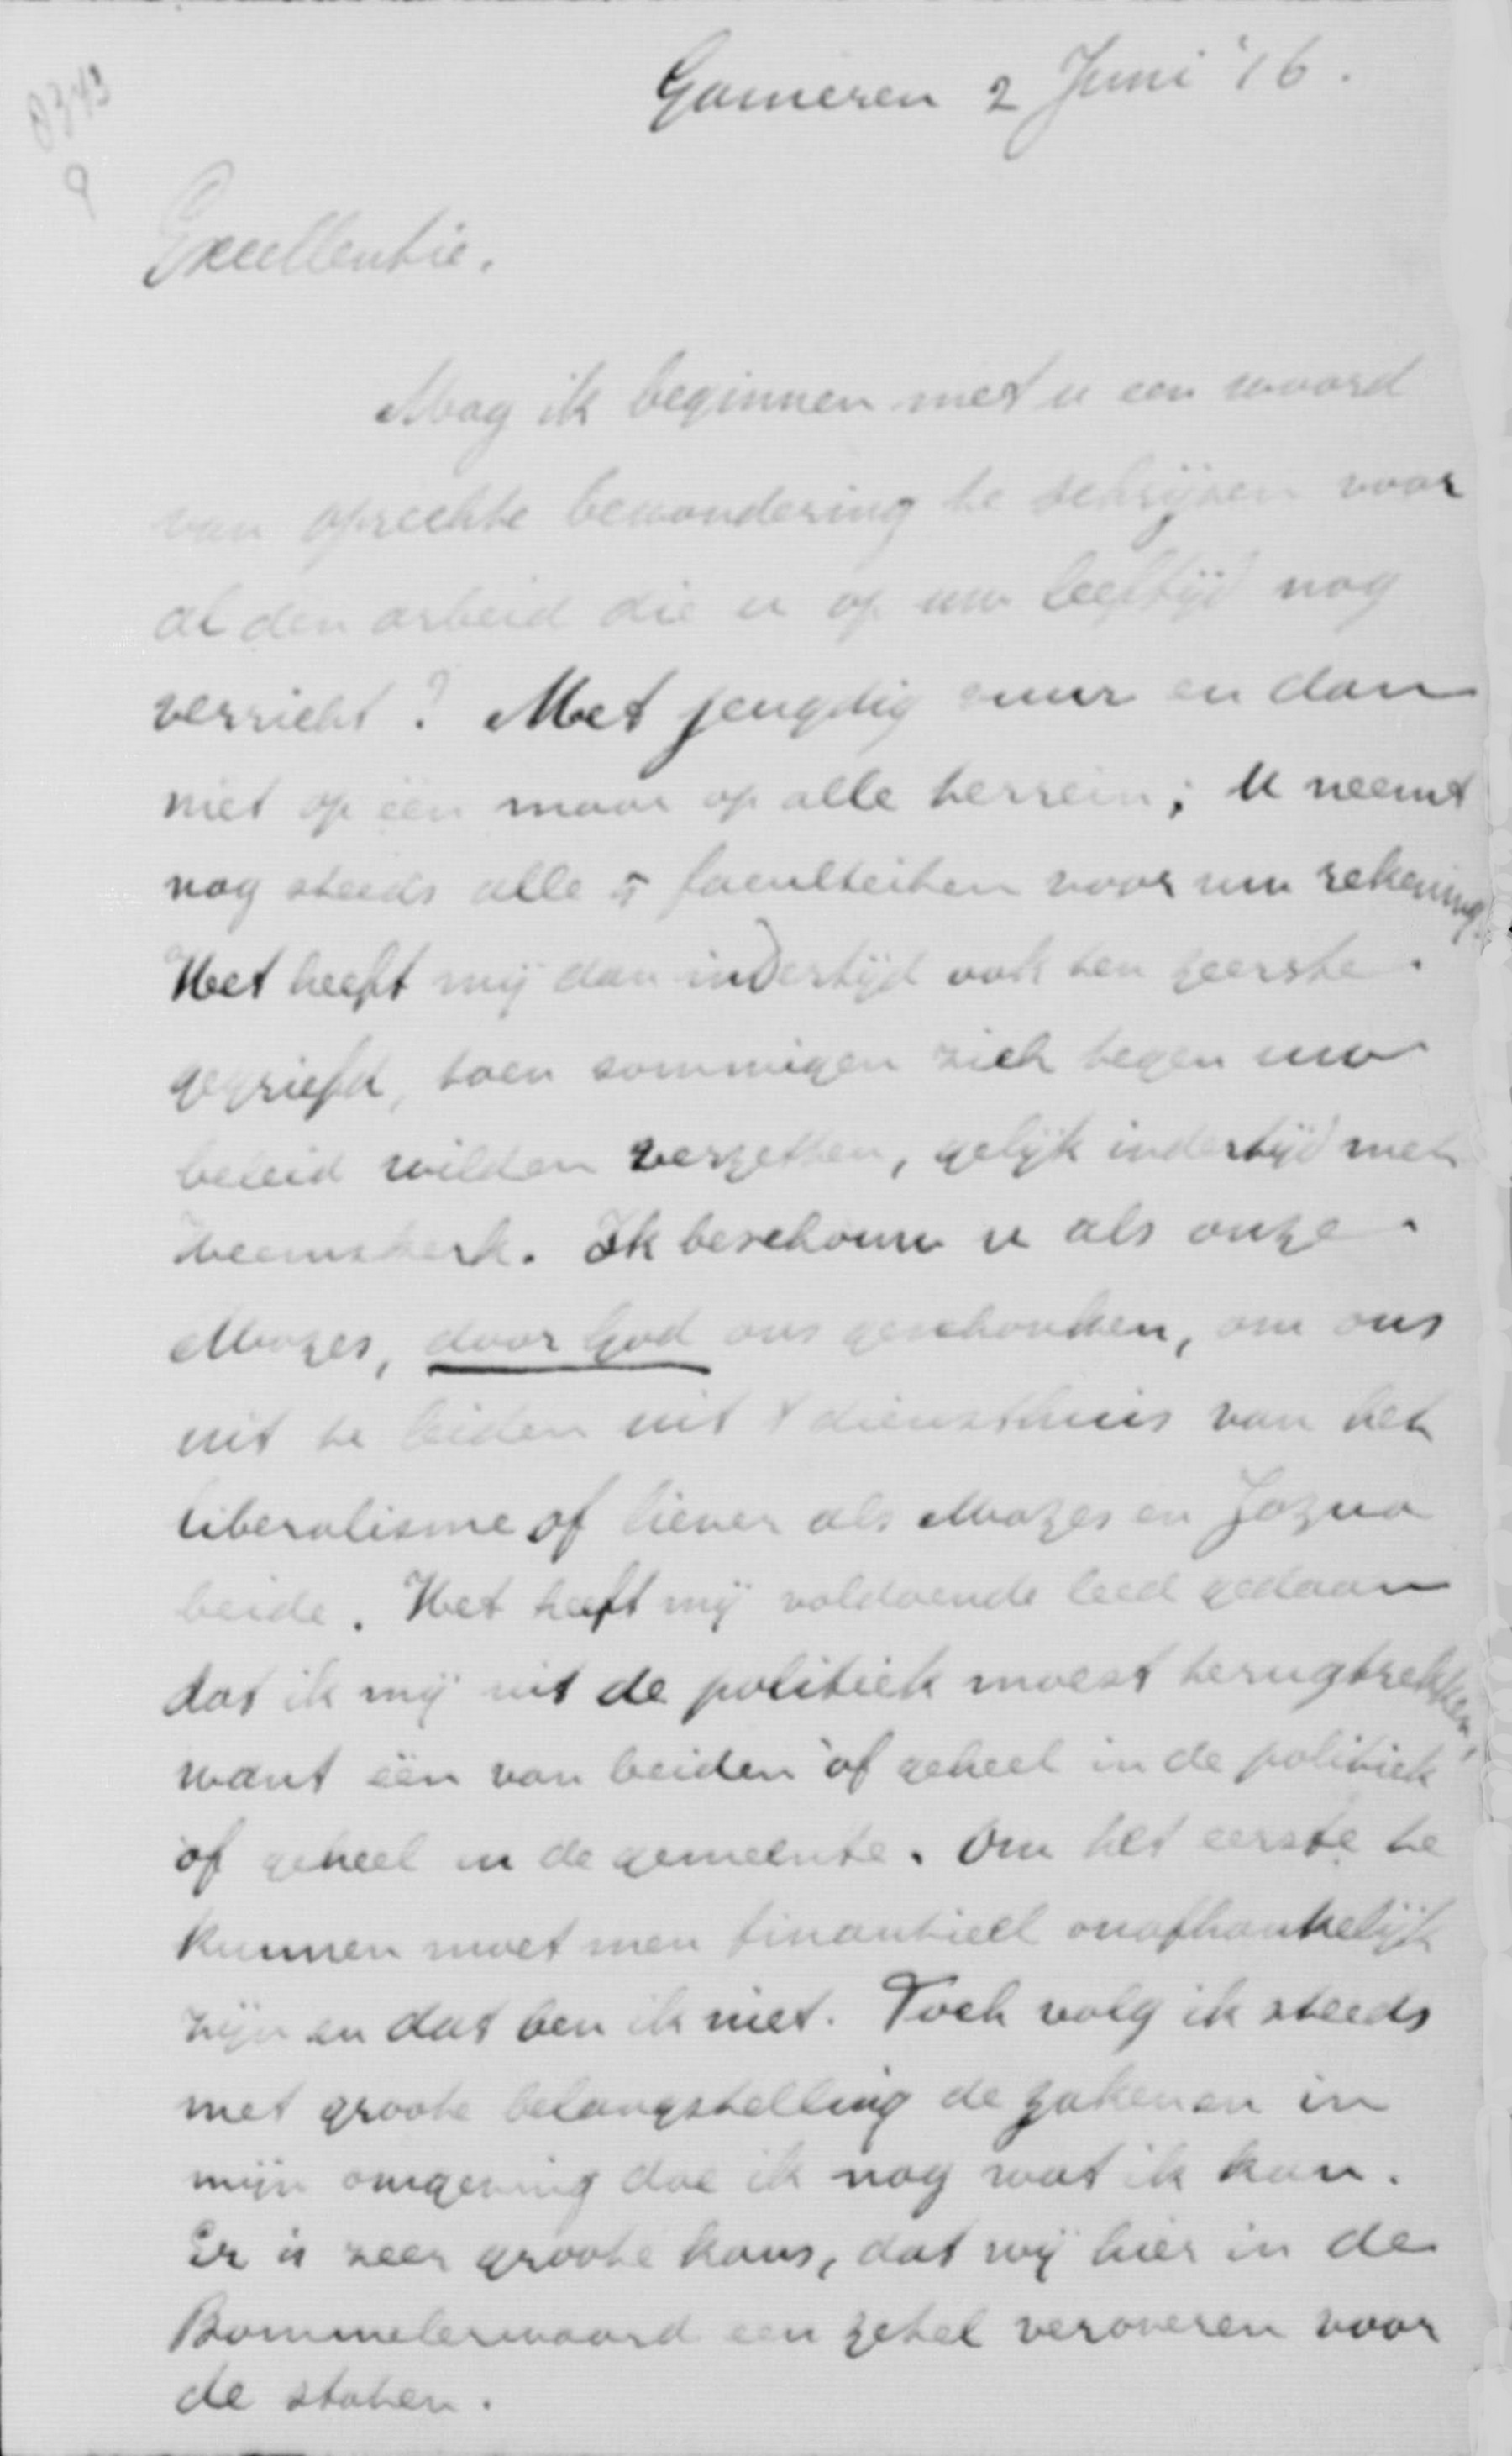 8343
9
Gameren 2 Juni '16.
Excellentie.
Mag ik beginnen met u een woord
van oprechte bewondering te schrijven voor
al den arbeid die u op uw leeftijd nog
verricht? Met jeugdig vuur en dan
niet op één maar op alle terrein; U neemt
nog steeds alle 5 faculteiten voor uw rekening.
Het heeft mij dan indertijd ook ten zeerste
gegriefd, toen sommigen zich tegen uw
beleid wilden verzetten, gelijk indertijd met
Heemskerk. Ik beschouw u als onze
Mozes, door God ons geschonken, om ons
uit te leiden uit 't diensthuis van het
liberalisme of liever als Mozes en Jozua
beide. Het heeft mij voldoende leed gedaan
dat ik mij uit de politiek moest terugtrekken,
want één van beiden òf geheel in de politiek
òf geheel in de gemeente. Om het eerste te
kunnen moet men finantieel onafhankelijk
zijn en dat ben ik niet. Toch volg ik steeds
met groote belangstelling de zaken en in
mijn omgeving doe ik nog wat ik kan.
Er is zeer groote kans, dat wij hier in de
Bommelerwaard een zetel veroveren voor
de staten.